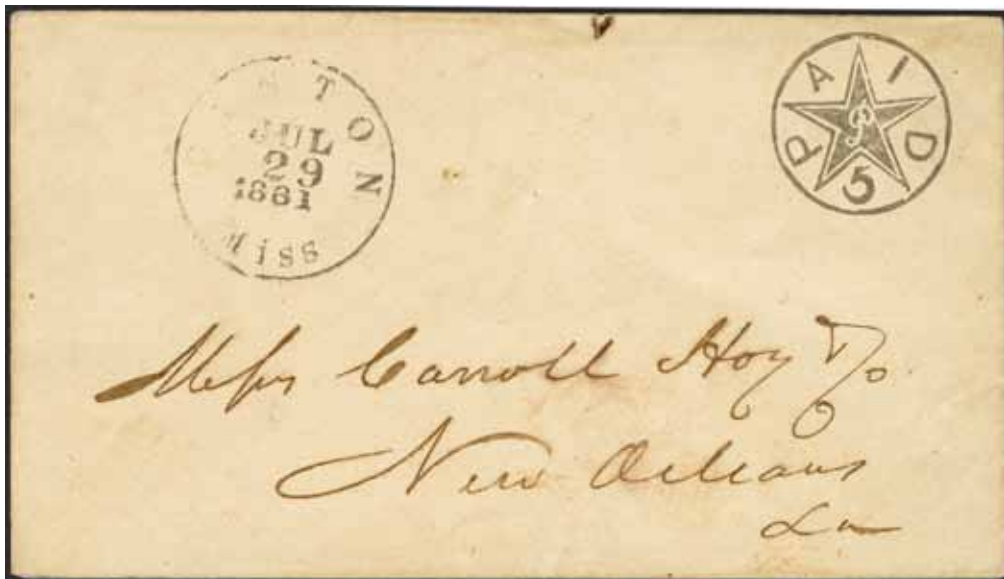 CANTON
JUL
29
1861
Miss
PAID
P
5
Messrs Carroll Hoy & Co
New Orleans
La